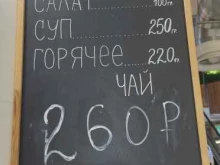 САЛАТ 100гр.
СУП.......250гр.
ГОРЯЧЕЕ....220гр.
ЧАЙ
260₽